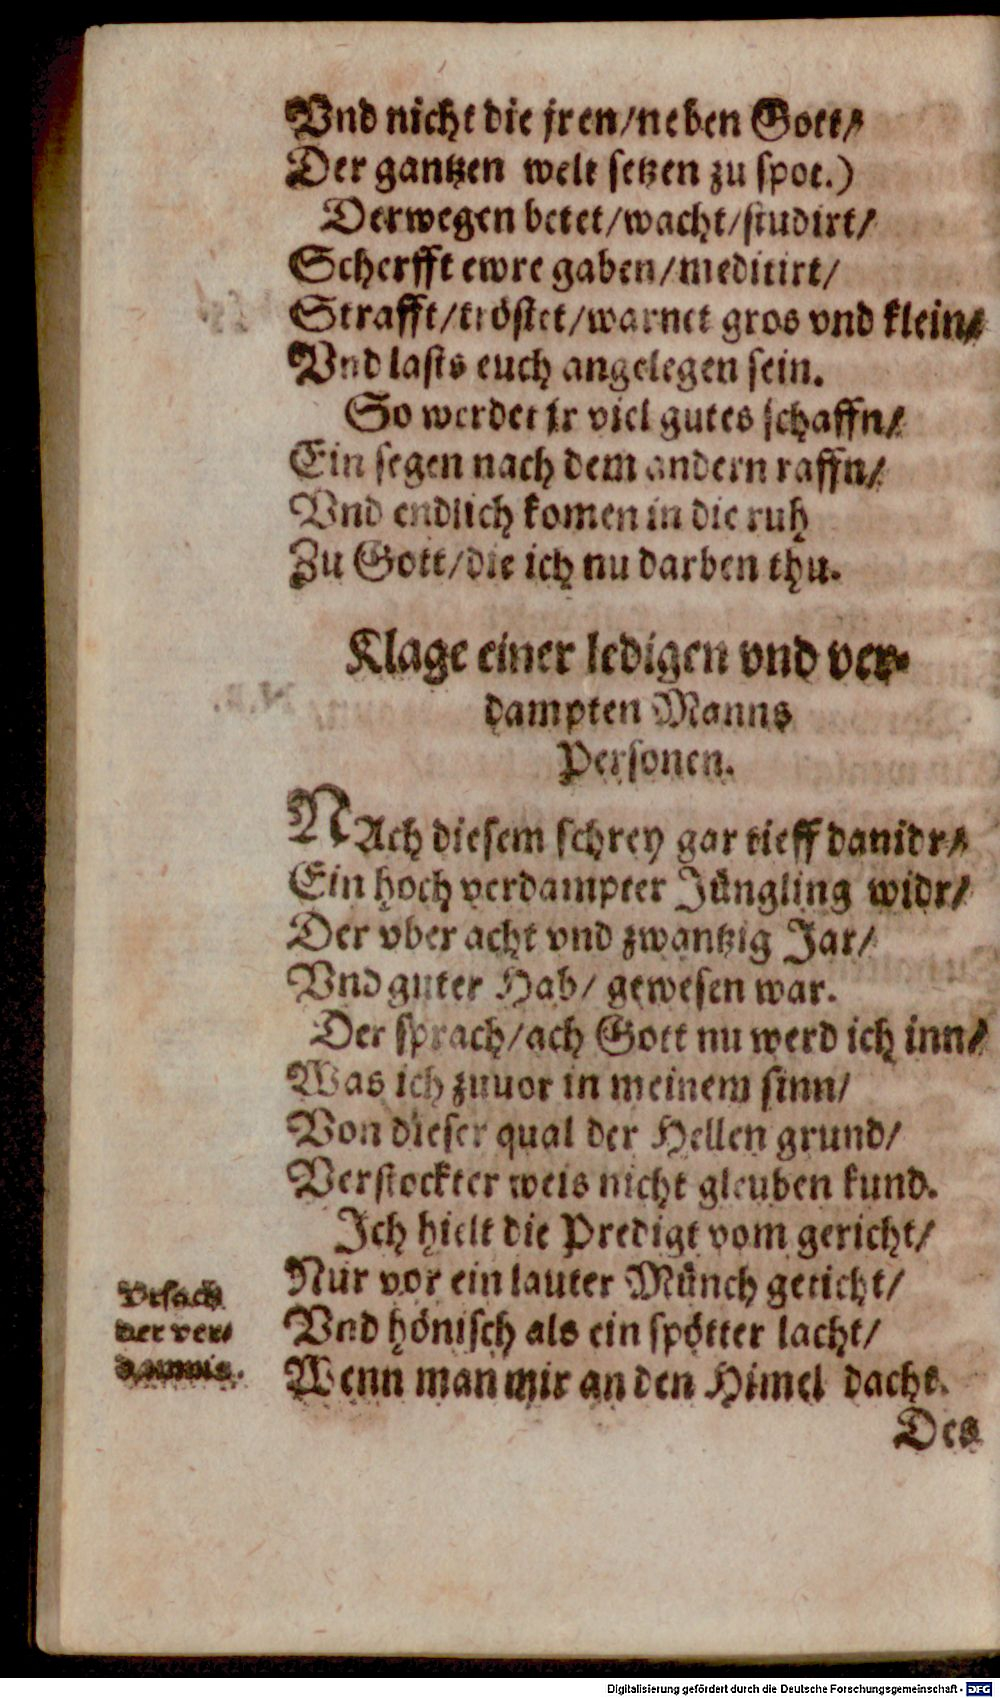 Vnd nicht die jren/neben Gott/
Der gantzen welt setzen zu spot.)
Derwegen betet/wacht/studirt/
Scherfft ewre gaben/meditirt/
Strafft/tröstet/warnet gros vnd klein/
Vnd lasts euch angelegen sein.
So werdet jr viel gutes schaffn/
Ein segen nach dem andern raffn/
Vnd endlich komen in die ruh
Zu Gott/die ich nu darben thu.
Klage einer ledigen vnd ver-
dampten Manns
Personen.
NAch diesem schrey gar tieff danidr/
Ein hoch verdampter Jüngling widr/
Der vber acht vnd zwantzig Jar/
Vnd guter Hab/ gewesen war.
Der sprach/ach Gott nu werd ich inn/
Was ich zuuor in meinem sinn/
Von dieser qual der Hellen grund/
Verstockter weis nicht gleuben kund.
Ich hielt die Predigt vom gericht/
Nur vor ein lauter Münch geticht/
Vnd hönisch als ein spötter lacht/
Wenn man mir an den Himel dacht.
Vrsach
der ver-
damnis.
Des
Digitalisierung gefördert durch die Deutsche Forschungsgemeinschaft - DFG